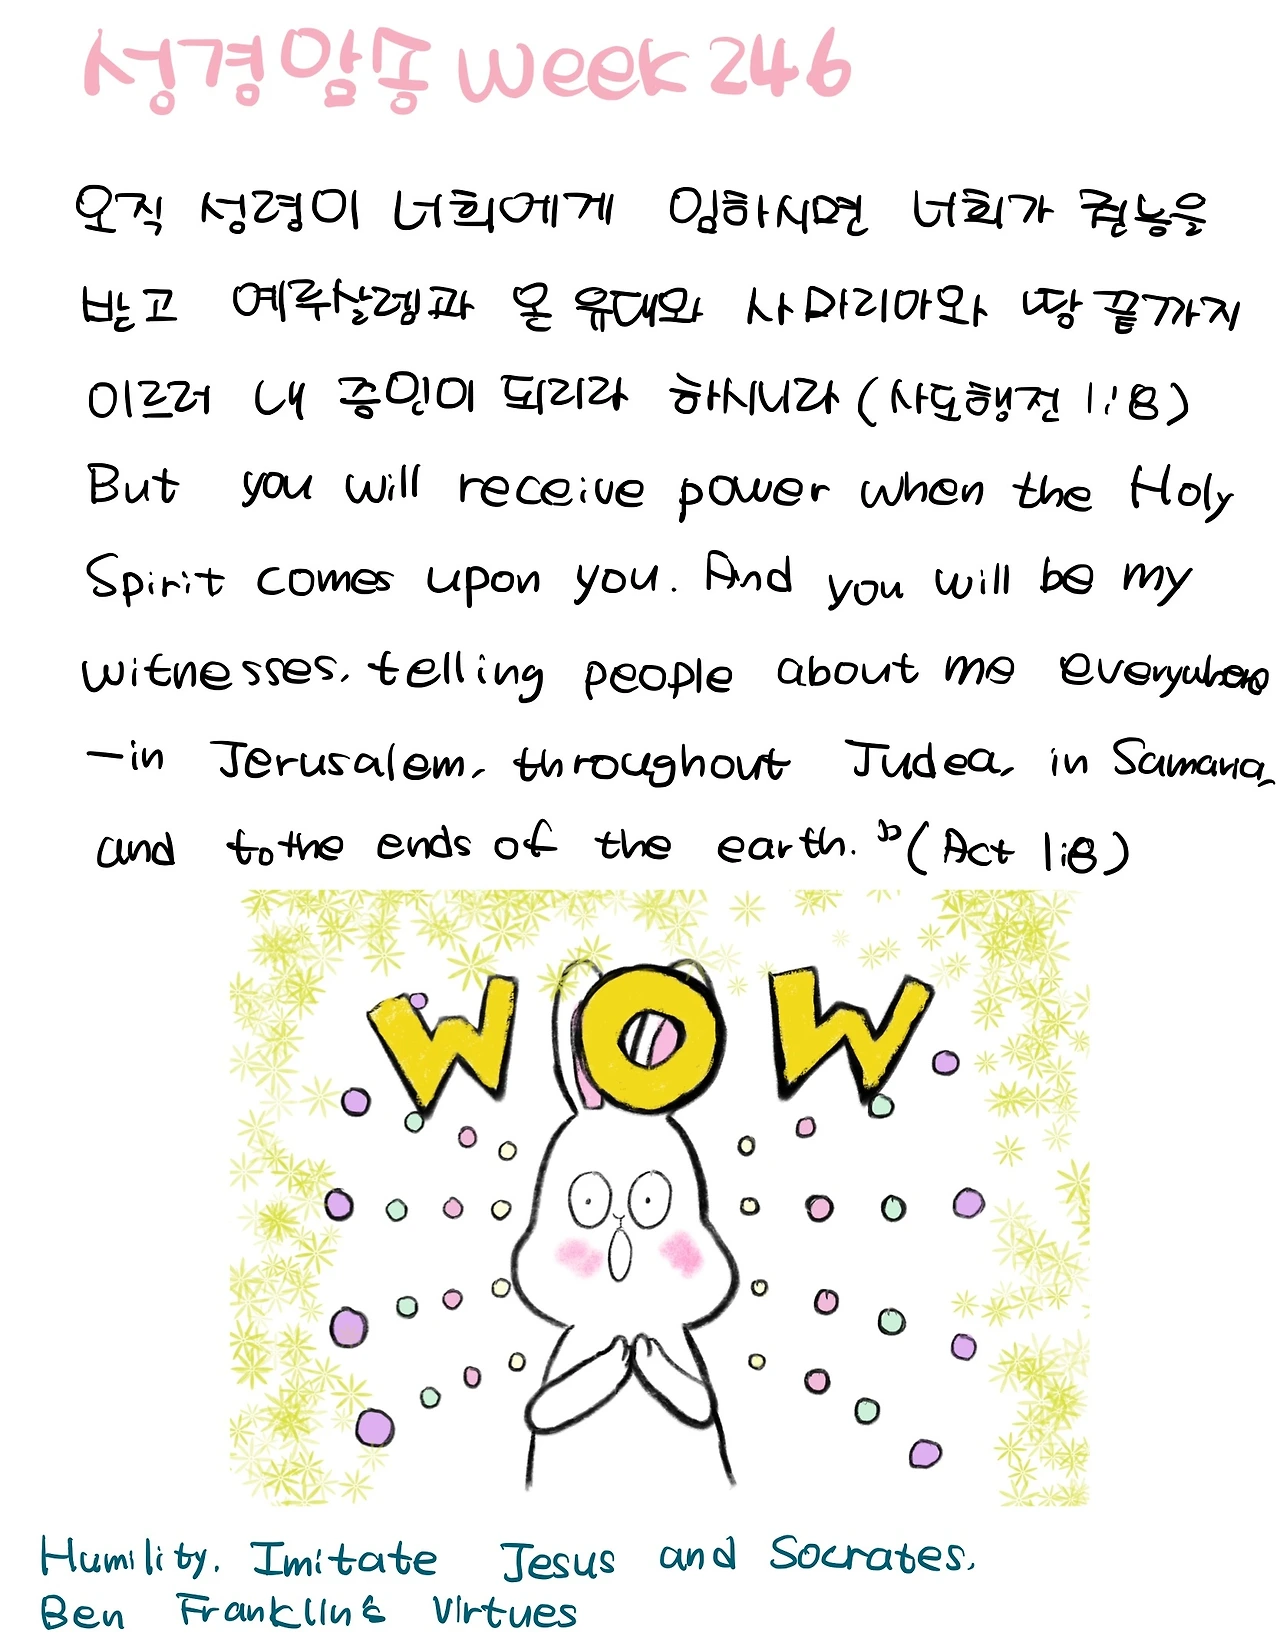 성경암송 Week 246
오직 성령이 너희에게 임하시면 너희가 권능을
받고 예루살렘과 온 유대와 사마리아와 땅 끝까지
이르러 내 증인이 되리라 하시니라 (사도행전 1:8)
But you will receive power when the Holy
Spirit comes upon you. And you will be my
witnesses, telling people about me everywhere
-in Jerusalem, throughout Judea, in Samaria,
and to the ends of the earth." (Act 1:8)
WOW
Humility. Imitate Jesus and Socrates.
Ben Franklin's Virtues